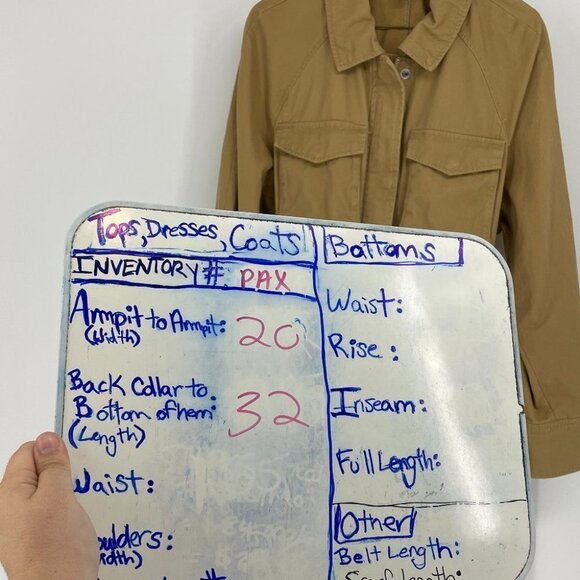 Tops, Dresses, Coats
INVENTORY #: PAX
Armpit to Armpit: 20
(Width)
Back Collar to
Bottom of hem: 32
(Length)
Waist:
oulders:
idth)
Bottoms
Waist:
Rise:
Inseam:
Full Length:
Other
Belt Length: